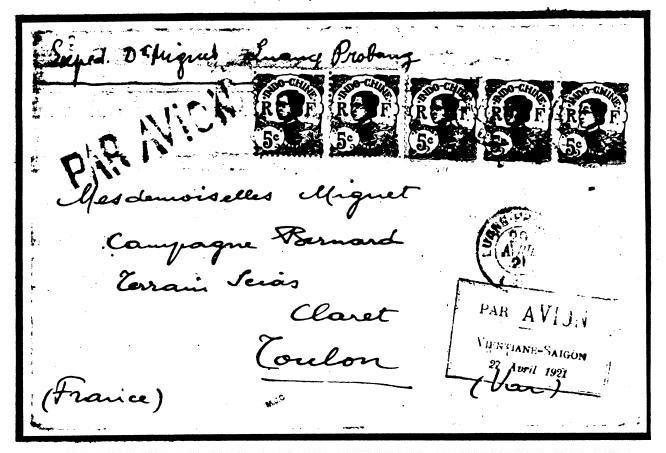 Exped. Dr Miguet Luang Probang
PAR AVION
INDO-CHINE R F 5c
INDO-CHINE R F 5c
INDO-CHINE R F 5c
INDO-CHINE R F 5c
INDO-CHINE R F 5c
Mesdemoiselles Miguet
Campagne Bernard
Terrain Seias
Claret
Toulon
(Var)
(France)
LUANG-PR
21
PAR AVION
VIENTIANE-SAIGON
27 Avril 1921
MJC